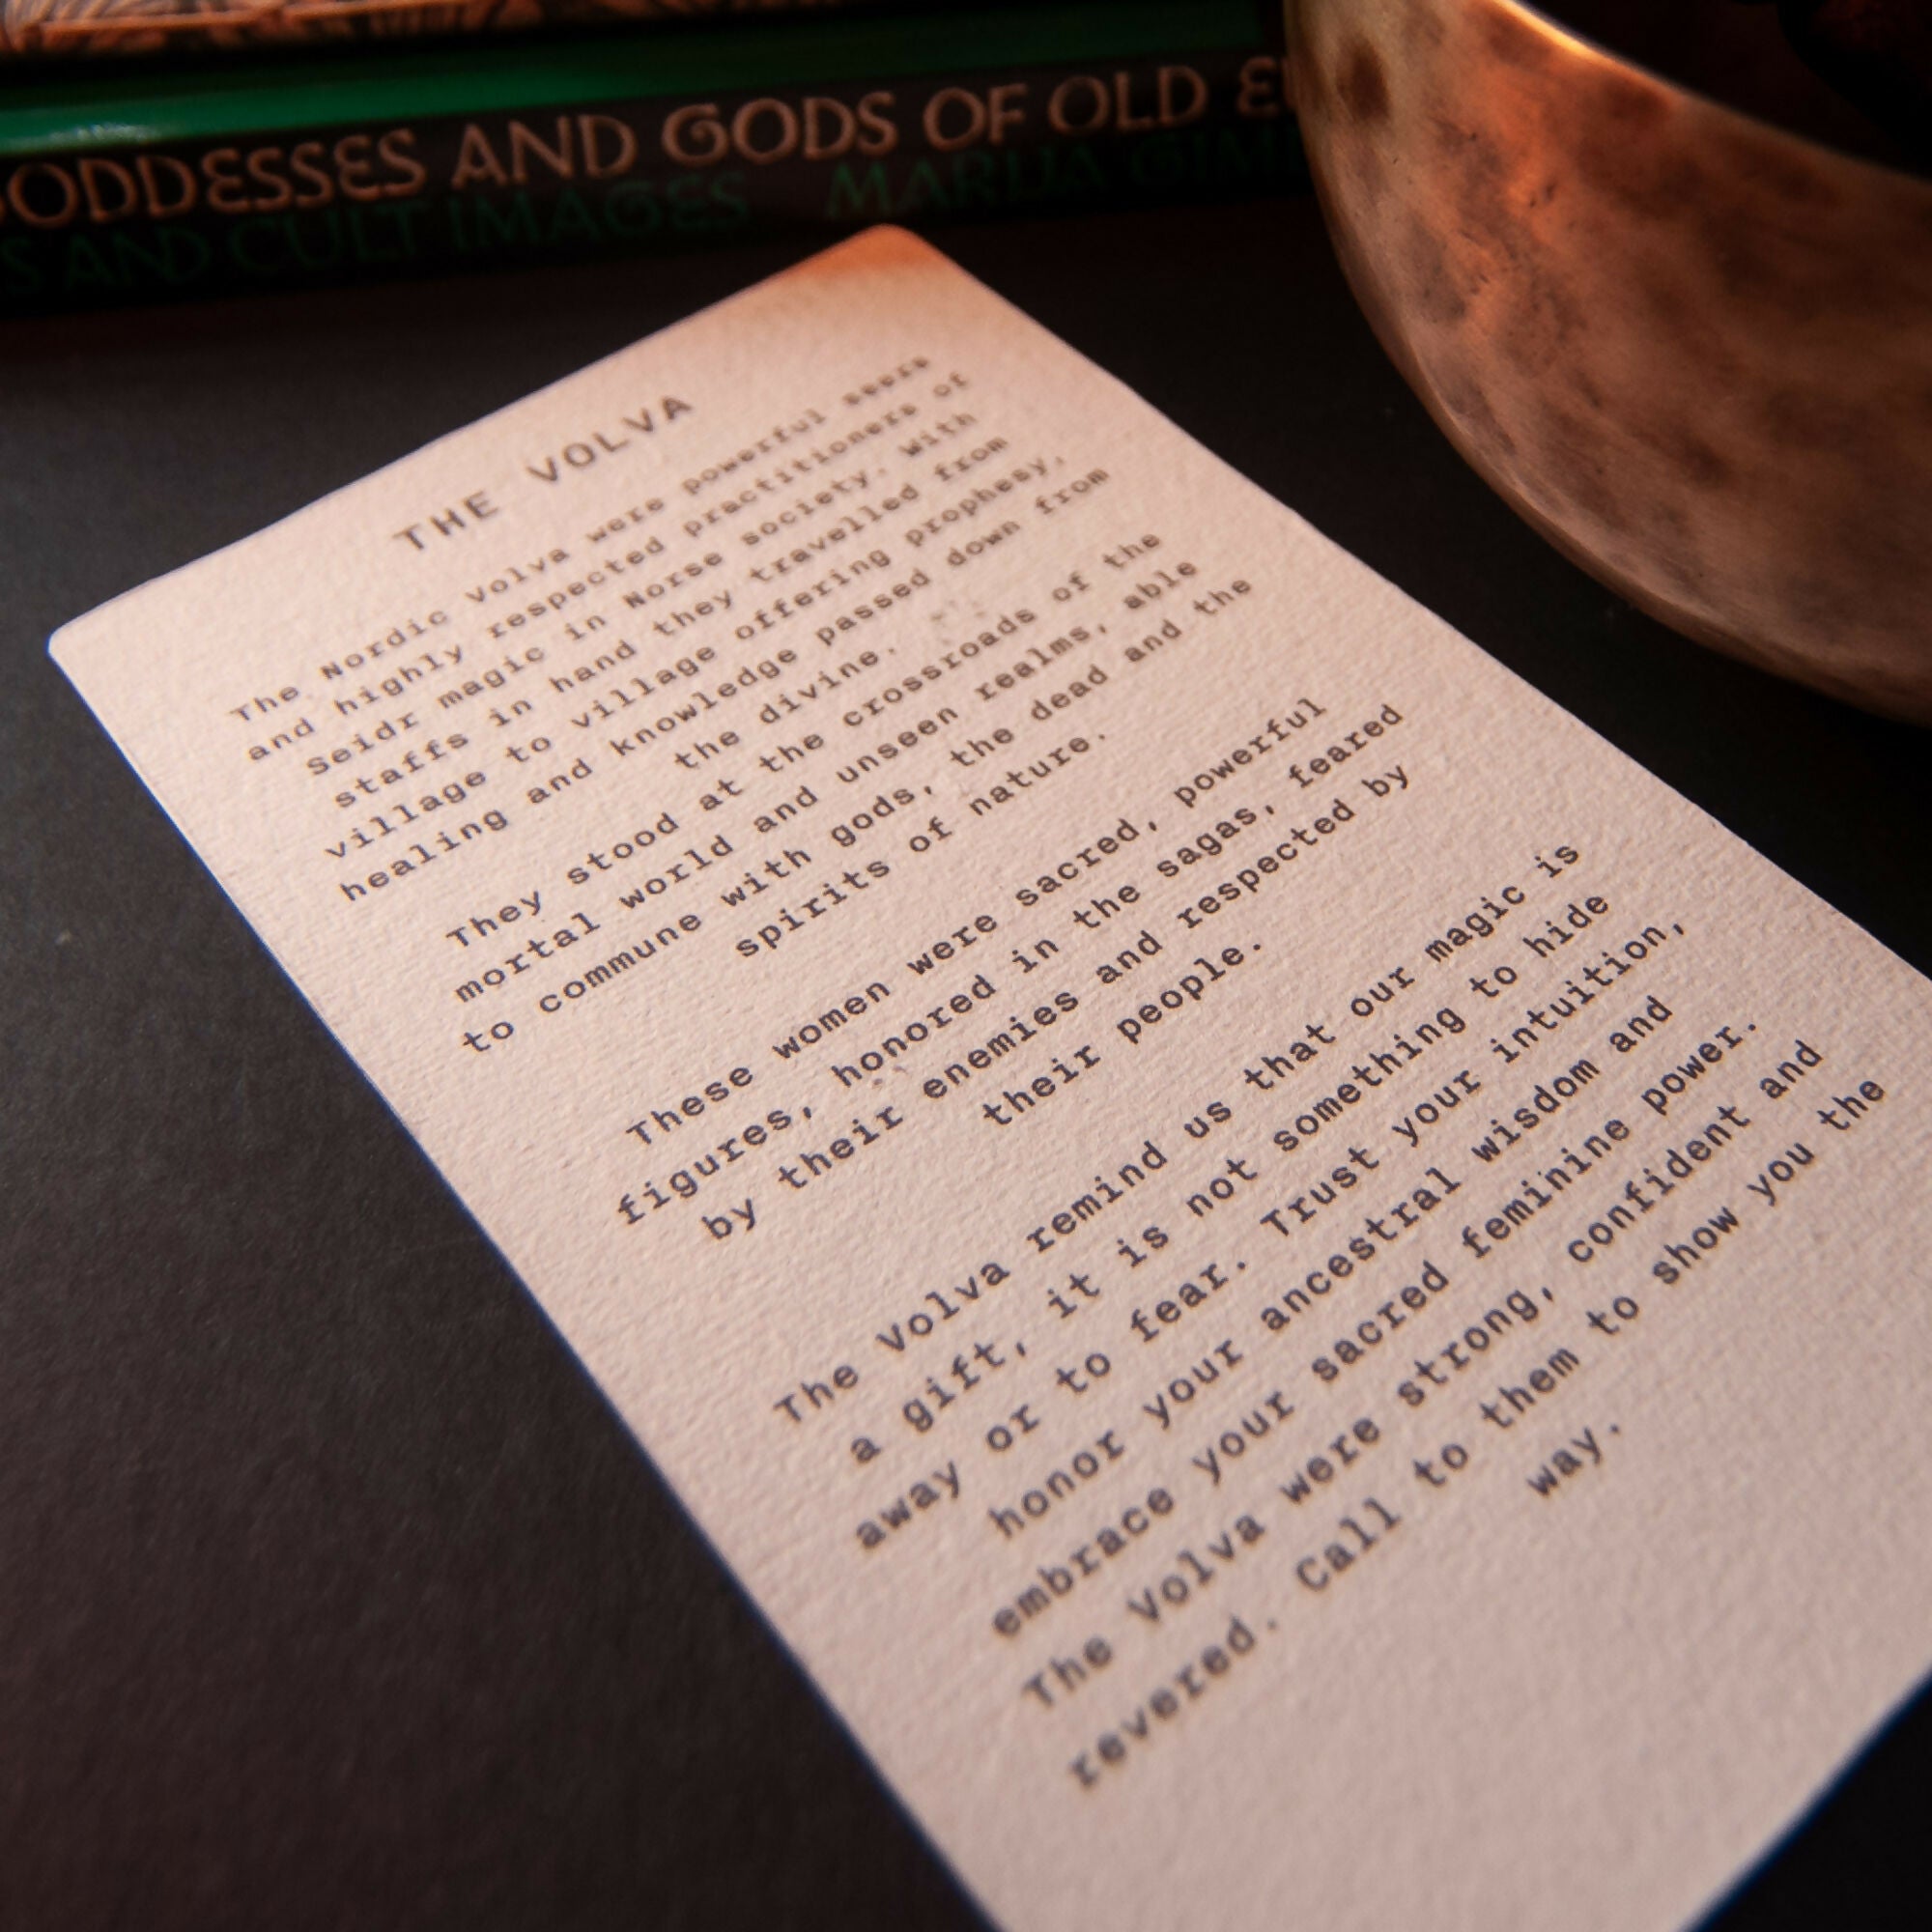 ODDESSES AND GODS OF OLD
S AND CULT IMAGES MARIJA
THE VOLVA
The Nordic Volva were powerful seers
and highly respected practitioners of
Seidr magic in Norse society. With
staffs in hand they travelled from
village to village offering prophesy,
healing and knowledge passed down from
the divine.
They stood at the crossroads of the
mortal world and unseen realms, able
to commune with gods, the dead and the
spirits of nature.
These women were sacred, powerful
figures, honored in the sagas, feared
by their enemies and respected by
their people.
The Volva remind us that our magic is
a gift, it is not something to hide
away or to fear. Trust your intuition,
honor your ancestral wisdom and
embrace your sacred feminine power.
The Volva were strong, confident and
revered. Call to them to show you the
way.